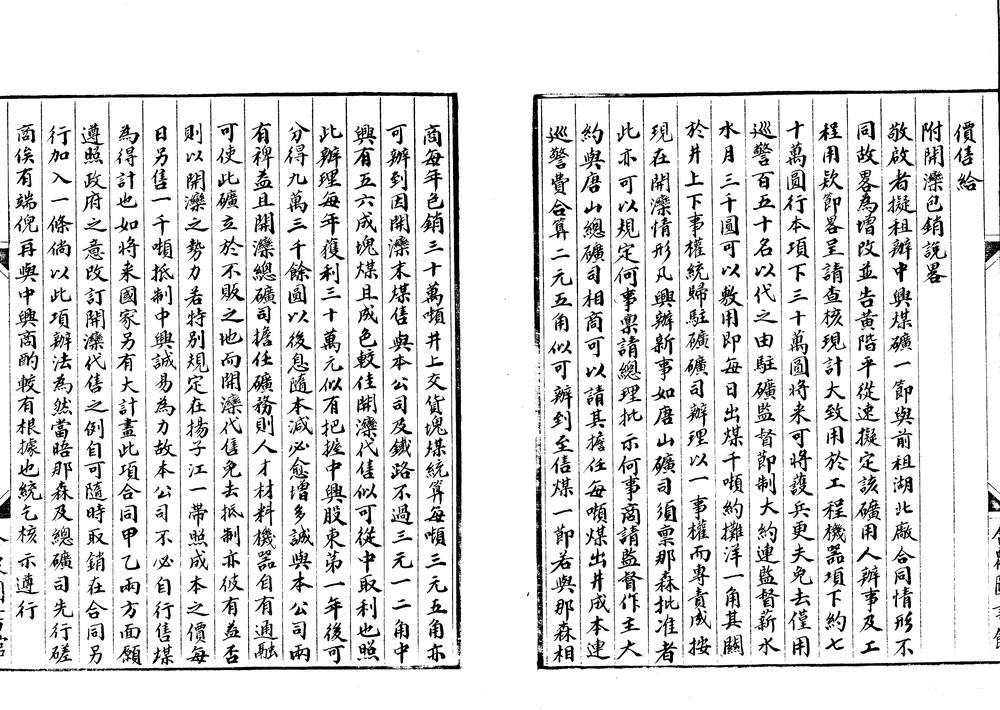 價售給
附開灤包銷說畧
敬啟者擬租辦中興煤礦一節與前租湖北廠合同情形不
同故畧為增改並告黃陪平從速擬定該礦用人辦事及工
程用欵節畧呈請查核現計大致用於工程機器項下約七
十萬圓行本項下三十萬圓將來可將護兵更夫免去僅用
巡警百五十名以代之由駐礦監督節制大約連監督薪水
水月三千圓可以敷用即每日出煤千噸約攤洋一角其關
於井上下事權統歸駐礦礦司辦理以一事權而專責成按
現在開灤情形凡興辦新事如唐山礦司須禀那森批准者
此亦可以規定何事禀請總理批示何事商請監督作主大
約與唐山總礦司相商可以請其擔任每噸煤出井成本連
巡警費合算二元五角似可辦到至售煤一節若與那森相
商每年包銷三十萬噸井上交貨塊煤統算每噸三元五角亦
可辦到因開灤末煤售與本公司及鐵路不過三元一二角中
興有五六成塊煤且成色較佳開灤代售似可從中取利也照
此辦理每年獲利三十萬元似有把握中興股東第一年後可
分得九萬三千餘圓以後息隨本減必愈增多誠與本公司兩
有裨益且開灤總礦司擔任礦務則人才材料機器自有通融
可使此礦立於不敗之地而開灤代售免去抵制亦彼有益否
則以開灤之勢力若特别規定在揚子江一帶照成本之價每
日另售一千噸抵制中興誠易為力故本公司不必自行售煤
為得計也如將來國家另有大計畫此項合同甲乙兩方面願
遵照政府之意改訂開灤代售之例自可隨時取銷在合同另
行加入一條倘以此項辦法為然當晤那森及總礦司先行磋
商俟有端倪再與中興商酌較有根據也統乞核示遵行